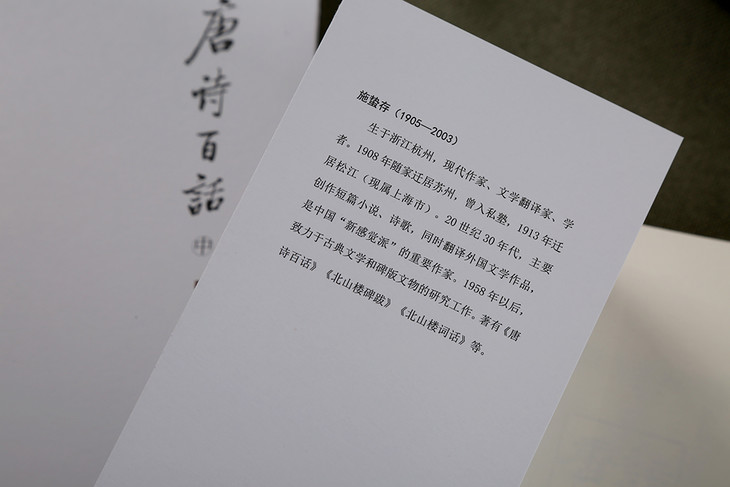 唐诗百話
中
施蛰存（1905—2003）
生于浙江杭州，现代作家、文学翻译家、学
者。1908年随家迁居苏州，曾入私塾，1913年迁
居松江（现属上海市）。20世纪30年代，主要
创作短篇小说、诗歌，同时翻译外国文学作品，
是中国“新感觉派”的重要作家。1958年以后，
致力于古典文学和碑版文物的研究工作。著有《唐
诗百话》《北山楼碑跋》《北山楼词话》等。